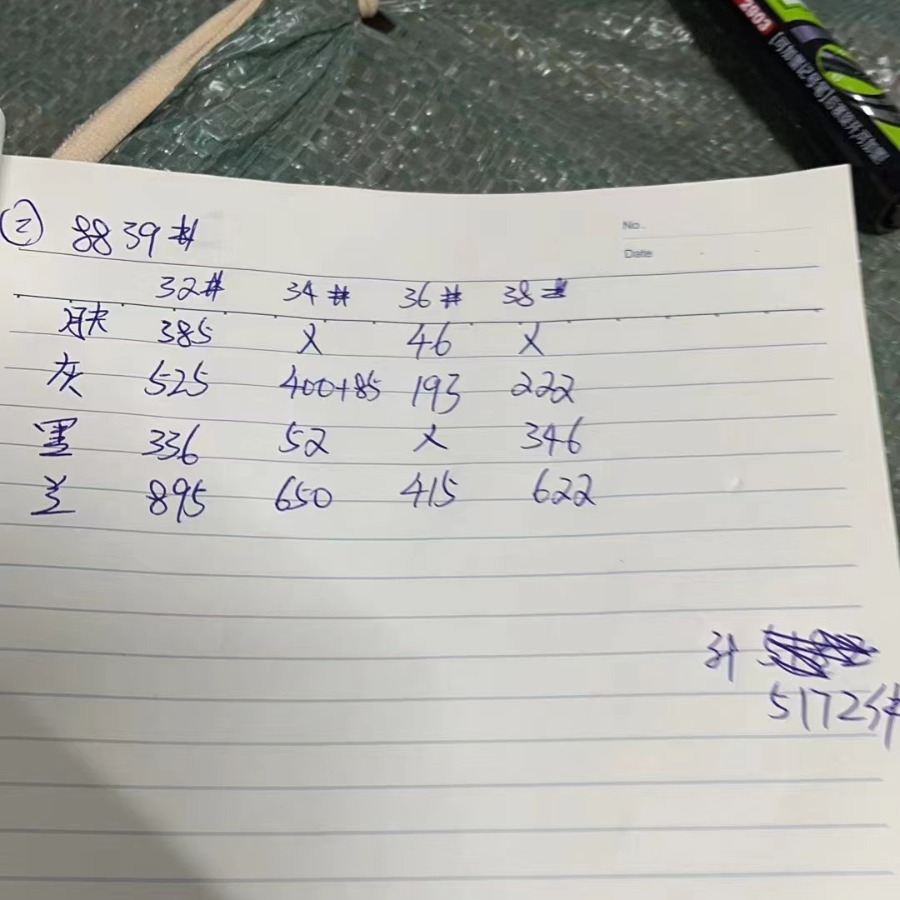 2803
② 8839#
No.
Date
32# 34# 36# 38#
肤 385 X 46 X
灰 525 400+85 193 222
黑 336 52 X 346
兰 895 650 415 622
计
5172件